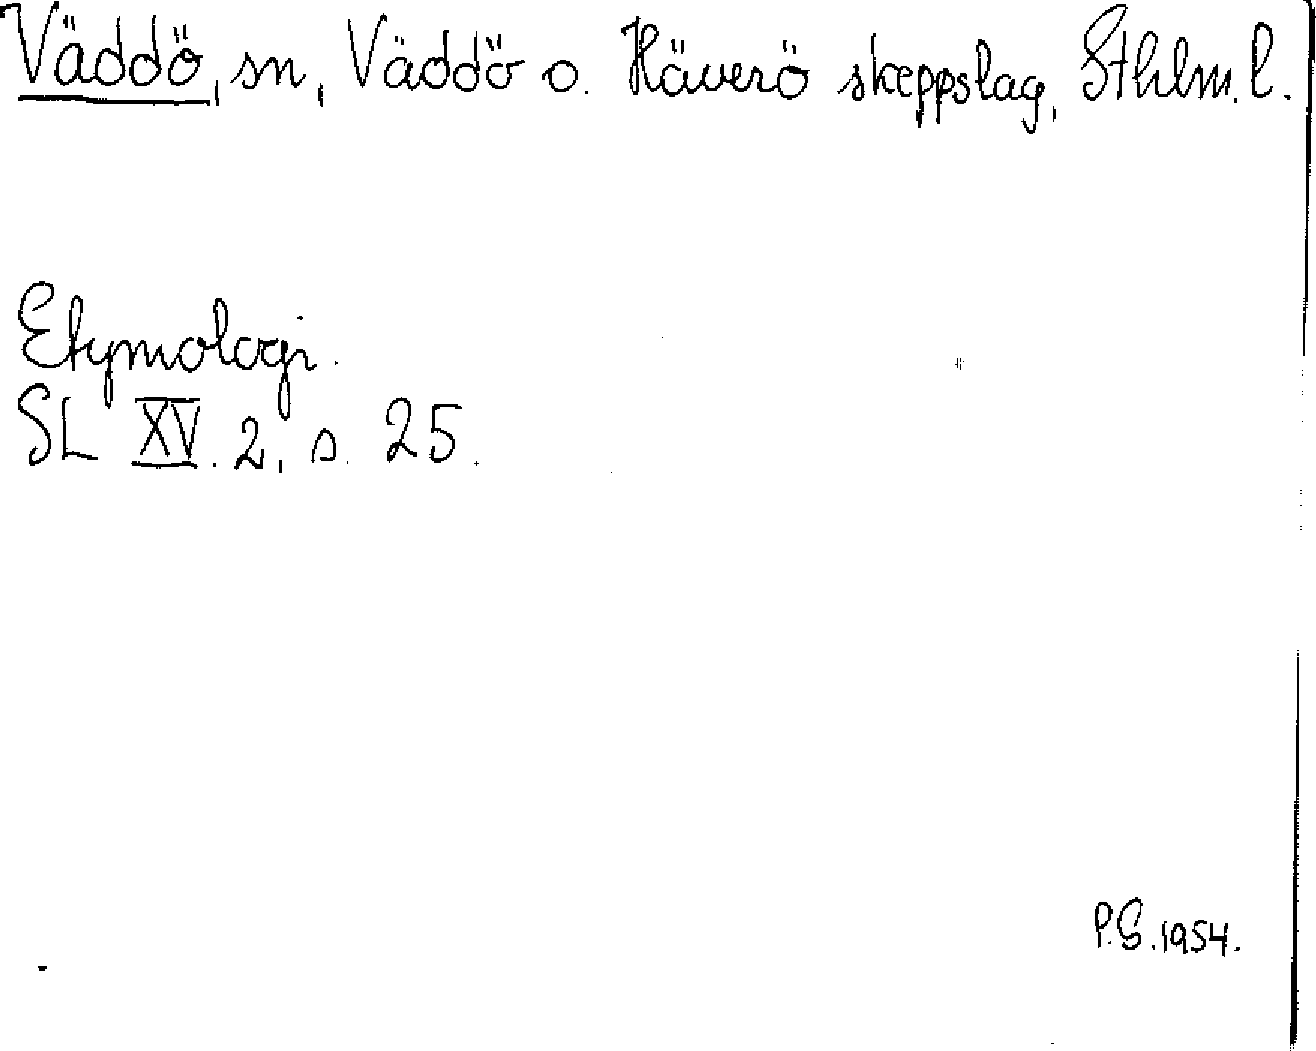 Väddö, sn, Väddö o. Häverö skeppslag, Sthlm. l.
Etymologi.
SL XV. 2, s. 25.
P.S. 1954.